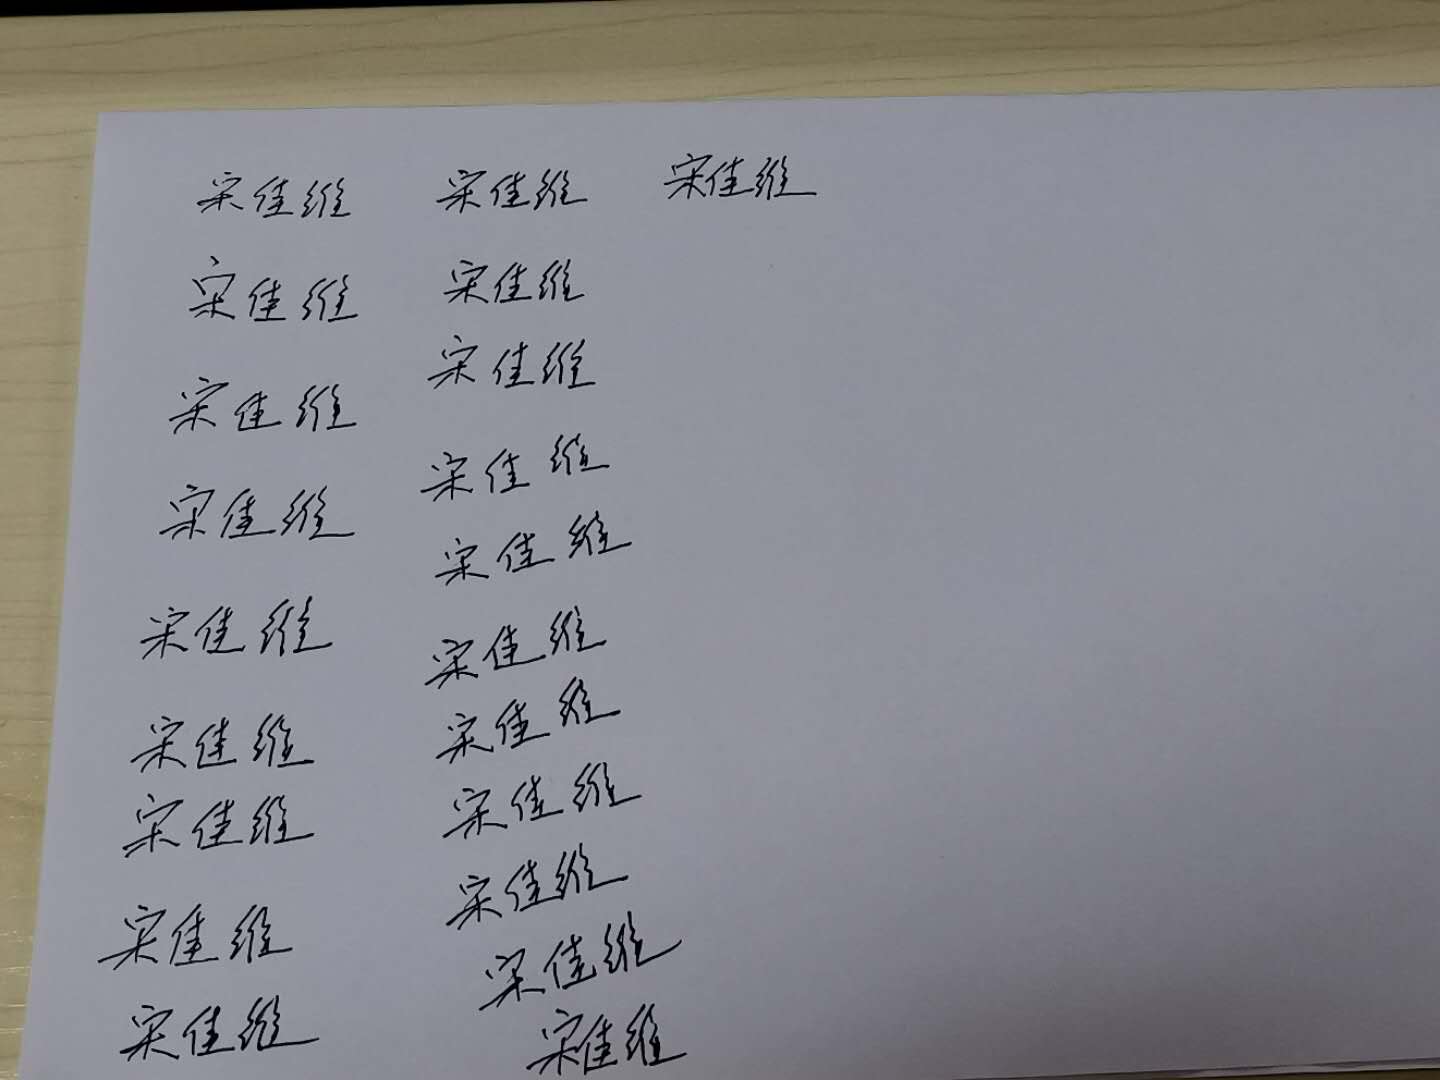 宋佳维 宋佳维 宋佳维
宋佳维 宋佳维
宋佳维 宋佳维
宋佳维 宋佳维
宋佳维 宋佳维
宋佳维 宋佳维
宋佳维 宋佳维
宋佳维 宋佳维
宋佳维 宋佳维
宋佳维
宋佳维